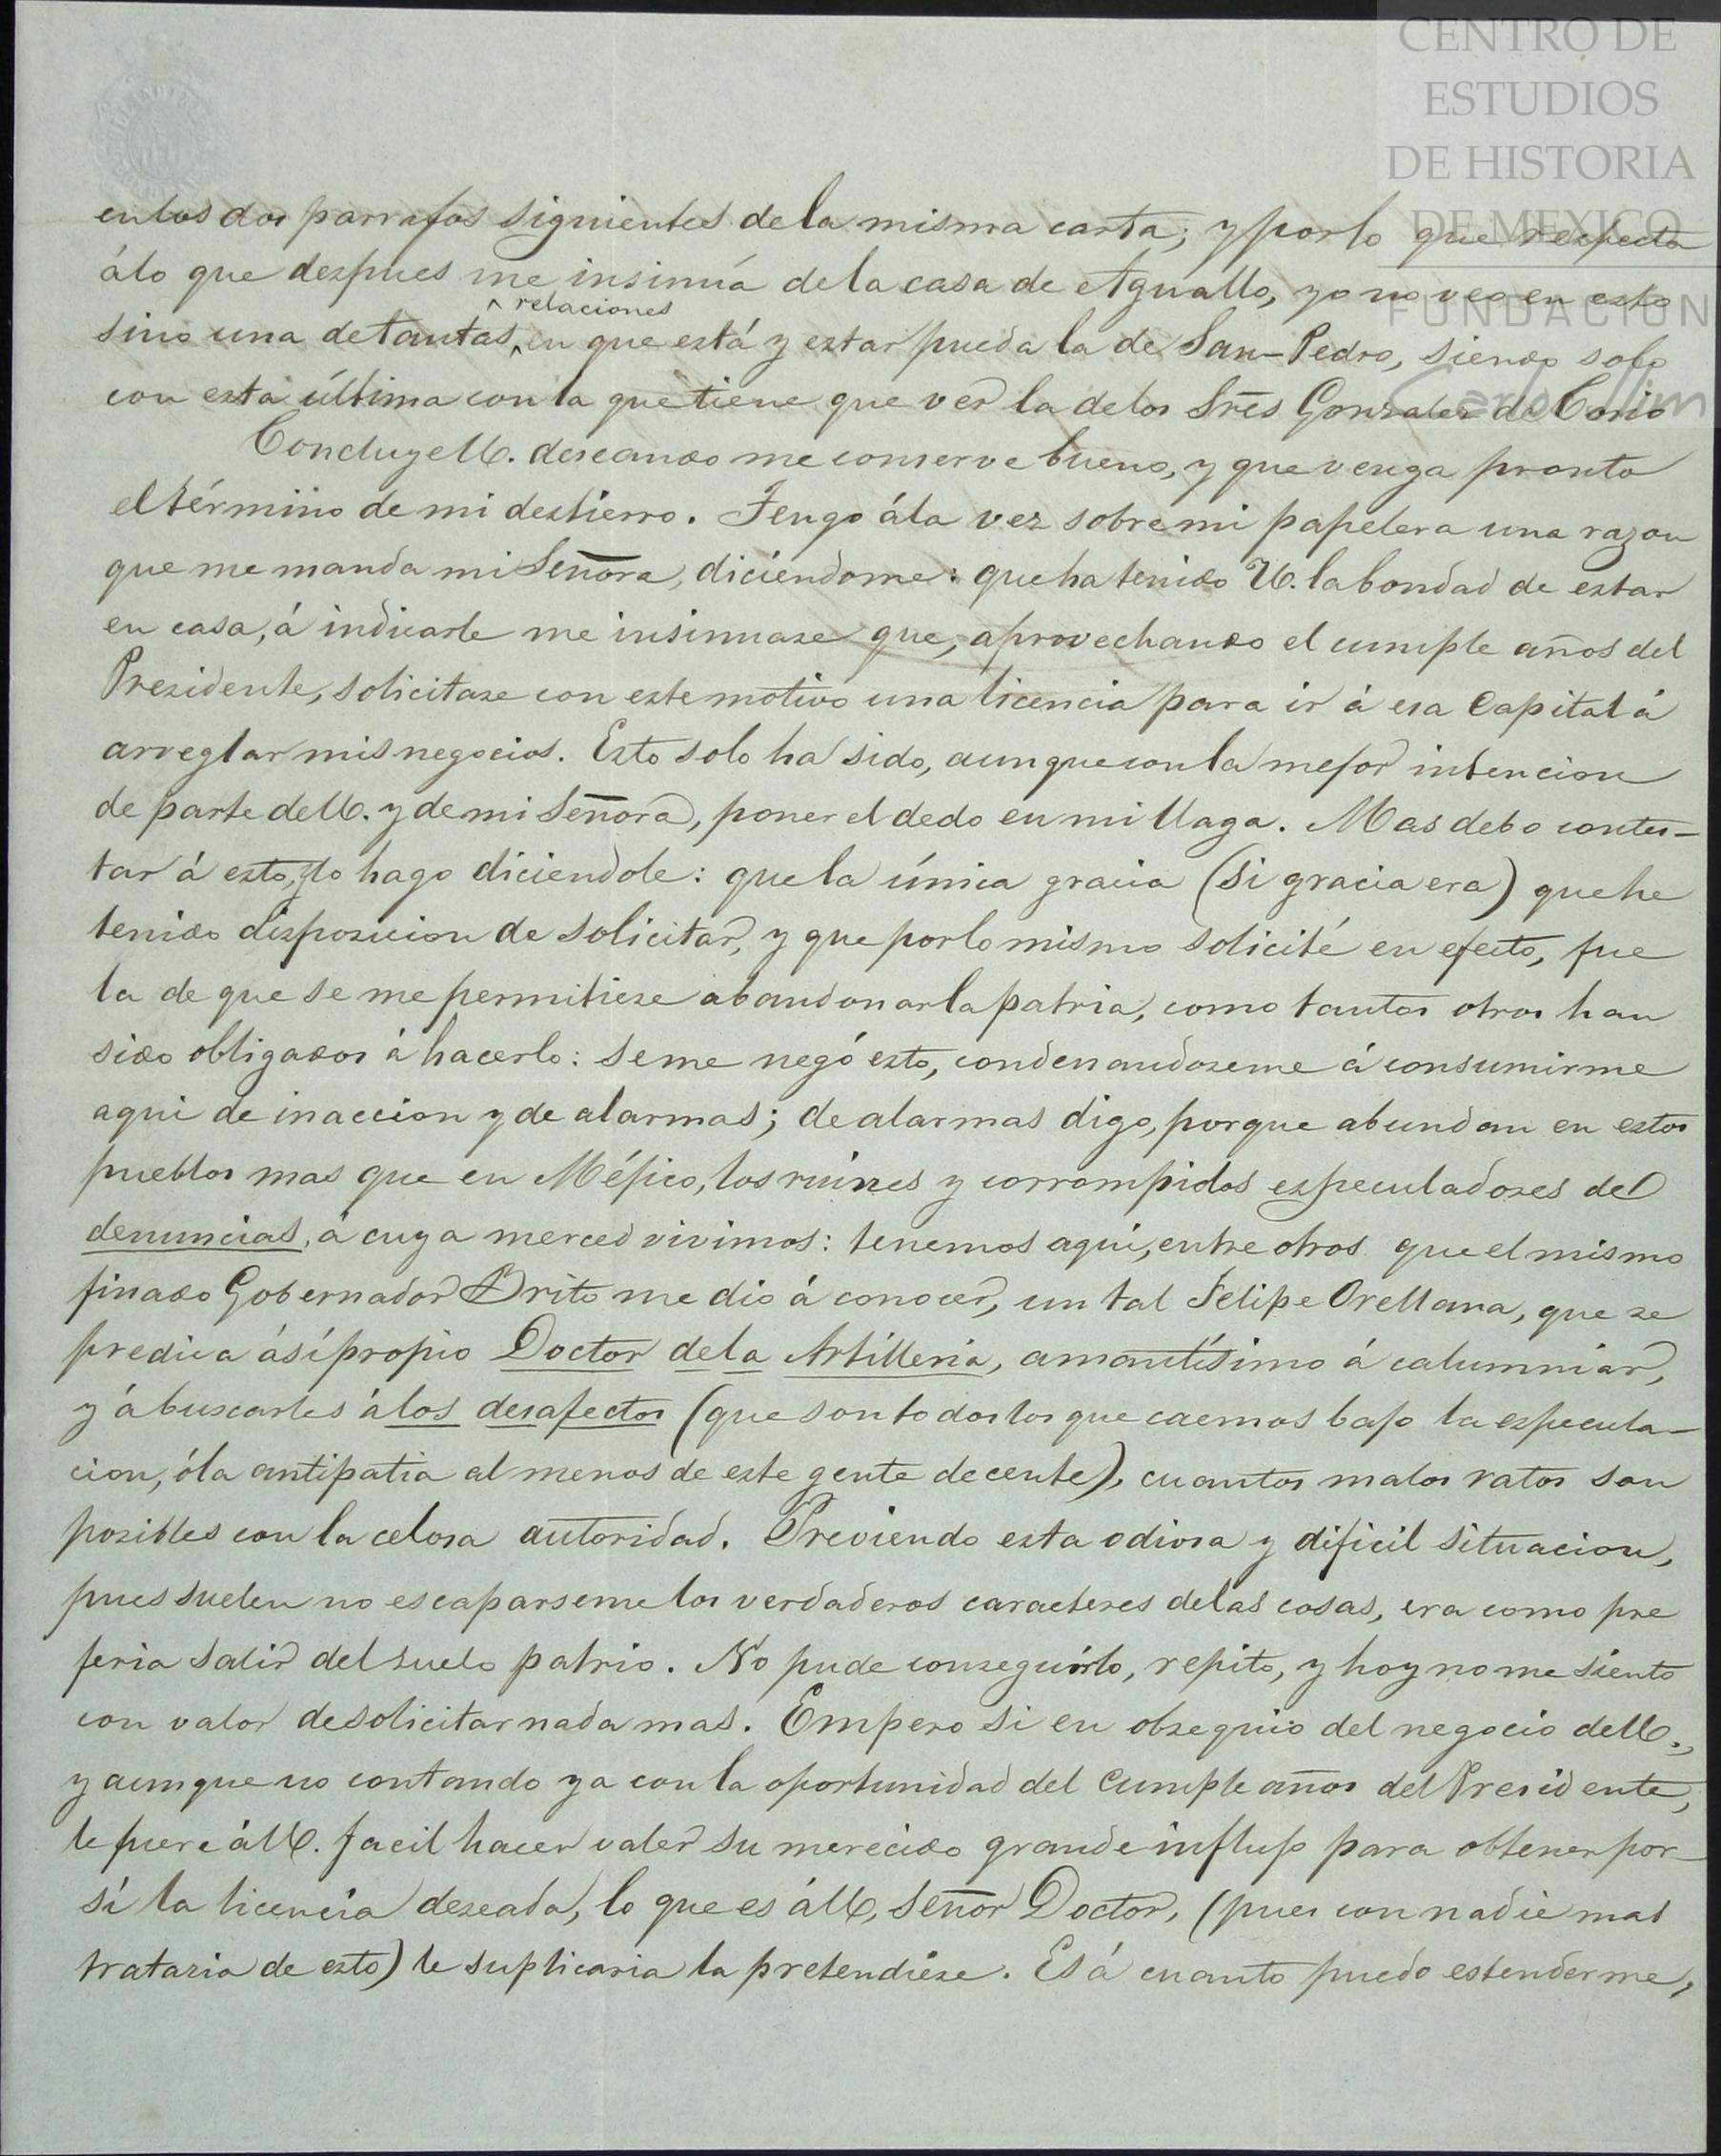 CENTRO DE
ESTUDIOS
DE HISTORIA
DE MEXICO
FUNDACION
Carlos Slim
en los dos parrafos siguientes de la misma carta; y por lo que respecta
á lo que despues me insinúa de la casa de Aguallo, yo no veo en esto
sino una de tantas ^relaciones^ en que está y estar pueda la de San-Pedro, siendo solo
con esta última con la que tiene que ver la de los Sres Gonzalez de Cosio
Concluye U. deseando me conserve bueno, y que venga pronto
el término de mi destierro. Tengo á la vez sobre mi papelera una razon
que me manda mi Señora, diciéndome: que ha tenido U. la bondad de estar
en casa, á indicarle me insinuase que, aprovechando el cumple años del
Presidente, solicitase con este motivo una licencia para ir á esa Capital á
arreglar mis negocios. Esto solo ha sido, aunque con la mejor intencion
de parte de U. y de mi Señora, poner el dedo en mi llaga. Mas debo contes-
tar á esto, y lo hago diciendole: que la única gracia (si gracia era) que he
tenido disposicion de solicitar, y que por lo mismo solicité en efecto, fue
la de que se me permitiese abandonar la patria, como tantos otros han
sido obligados á hacerlo: se me negó esto, condenandoseme á consumirme
aqui de inaccion y de alarmas; de alarmas digo, porque abundan en estos
pueblos mas que en Méjico, los ruines y corrompidos especuladores de
denuncias, á cuya merced vivimos: tenemos aqui, entre otros que el mismo
finado Gobernador Brito me dió á conocer, un tal Felipe Orellana, que se
predica á sí propio Doctor de la Artilleria, amantísimo á calumniar,
y á buscarles á los desafectos (que son todos los que caemos bajo la especula-
cion, ó la antipatia al menos de este gente decente), cuantos malos ratos son
posibles con la celosa autoridad. Previendo esta odiosa y dificil situacion,
pues suelen no escaparseme los verdaderos caracteres de las cosas, era como pre
feria salir del suelo patrio. No pude conseguirlo, repito, y hoy no me siento
con valor de solicitar nada mas. Empero si en obsequio del negocio de U.,
y aunque no contando ya con la oportunidad del cumple años del Presidente,
le fuere á U. facil hacer valer su merecido grande influjo para obtener por
sí la licencia deseada, lo que es á U, Señor Doctor, (pues con nadie mas
trataria de esto) le suplicaria la pretendiese. Es á cuanto puedo estenderme,